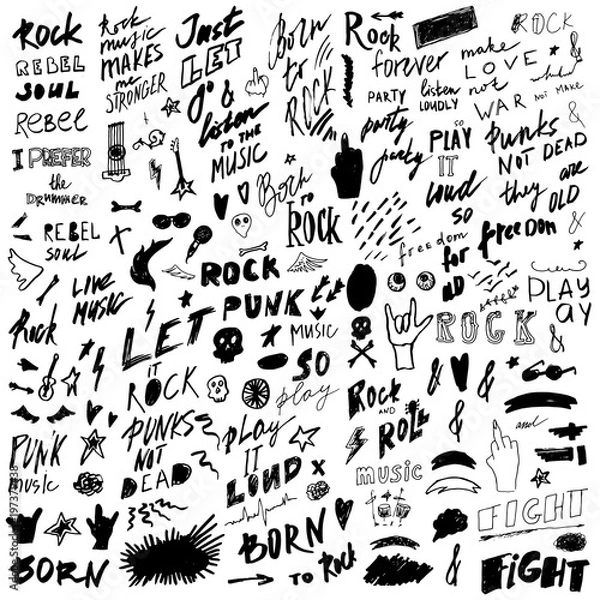 Rock
REBEL
SOUL
Rebel
I PREFER
the
DRUMMER
REBEL
SOUL
LIVE
MUSIC
Rock
PUNK
music
BORN
Rock
music
MAKES
me
STRONGER
Just
LET
go &
listen
TO THE
MUSIC
Born
to
ROCK
Born
TO
ROCK
ROCK
PUNK
MUSIC
LET
IT
ROCK
SO
play
PUNKS
NOT
DEAD
play
IT
LOUD
x
BORN
TO Rock
Rock
forever
PARTY
listen
LOUDLY
party
party
SO
PLAY
IT
loud
SO
freedom
for
freedom
ROCK
make
LOVE
not
WAR
NOT MAKE
&
&
Punks
NOT DEAD
they are
OLD
&
PLAY
ROCK
&
&
&
Rock
AND
ROLL
music
and
&
FIGHT
&
FIGHT